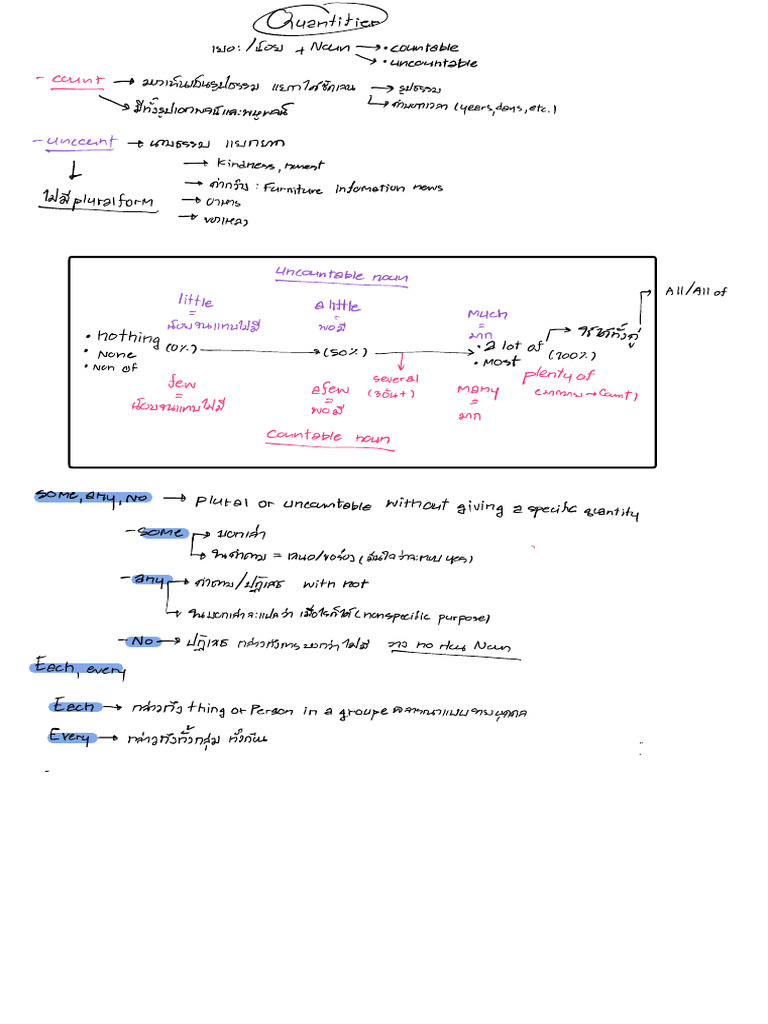 Quantities
เยอะ/น้อย + Noun → • countable
→ • uncountable
- count → มองเห็นเป็นรูปธรรม แยกได้ชัดเจน → รูปธรรม
→ มีทั้งรูปเอกพจน์และพหูพจน์ → (years, days, etc.)
- uncount → นามธรรม แยกยาก
→ kindness,
ไม่มี plural form → คำกว้าง : Furniture Infomation news
→ อาหาร
→ ของเหลว
uncountable noun
All/All of
little = น้อยจนแทบไม่มี
a little = พอมี
much = มาก
• nothing (0%) → (50%) → • a lot of (100%) → ใช้ได้ทั้งคู่
• None • most
• Non of
few = น้อยจนแทบไม่มี
a few = พอมี
several (3อัน+)
many = มาก
plenty of
Countable noun
some, any, No → plural or uncountable without giving a specific quantity
- some → บอกเล่า
→ ในคำถาม = เสนอ/ขอร้อง (มั่นใจว่าจะตอบ yes)
- any → คำถาม/ปฏิเสธ with not
→ ในบอกเล่าจะแปลว่า เมื่อไรก็ได้ (nonspecific purpose)
- No → ปฏิเสธ กล่าวถึงการบอกว่าไม่มี วาง no หน้า Noun
Each, every
Each → กล่าวถึง thing or Person in a groupe พิจารณาแบบรายบุคคล
Every → กล่าวถึงทั้งกลุ่ม ทั้งก้อน